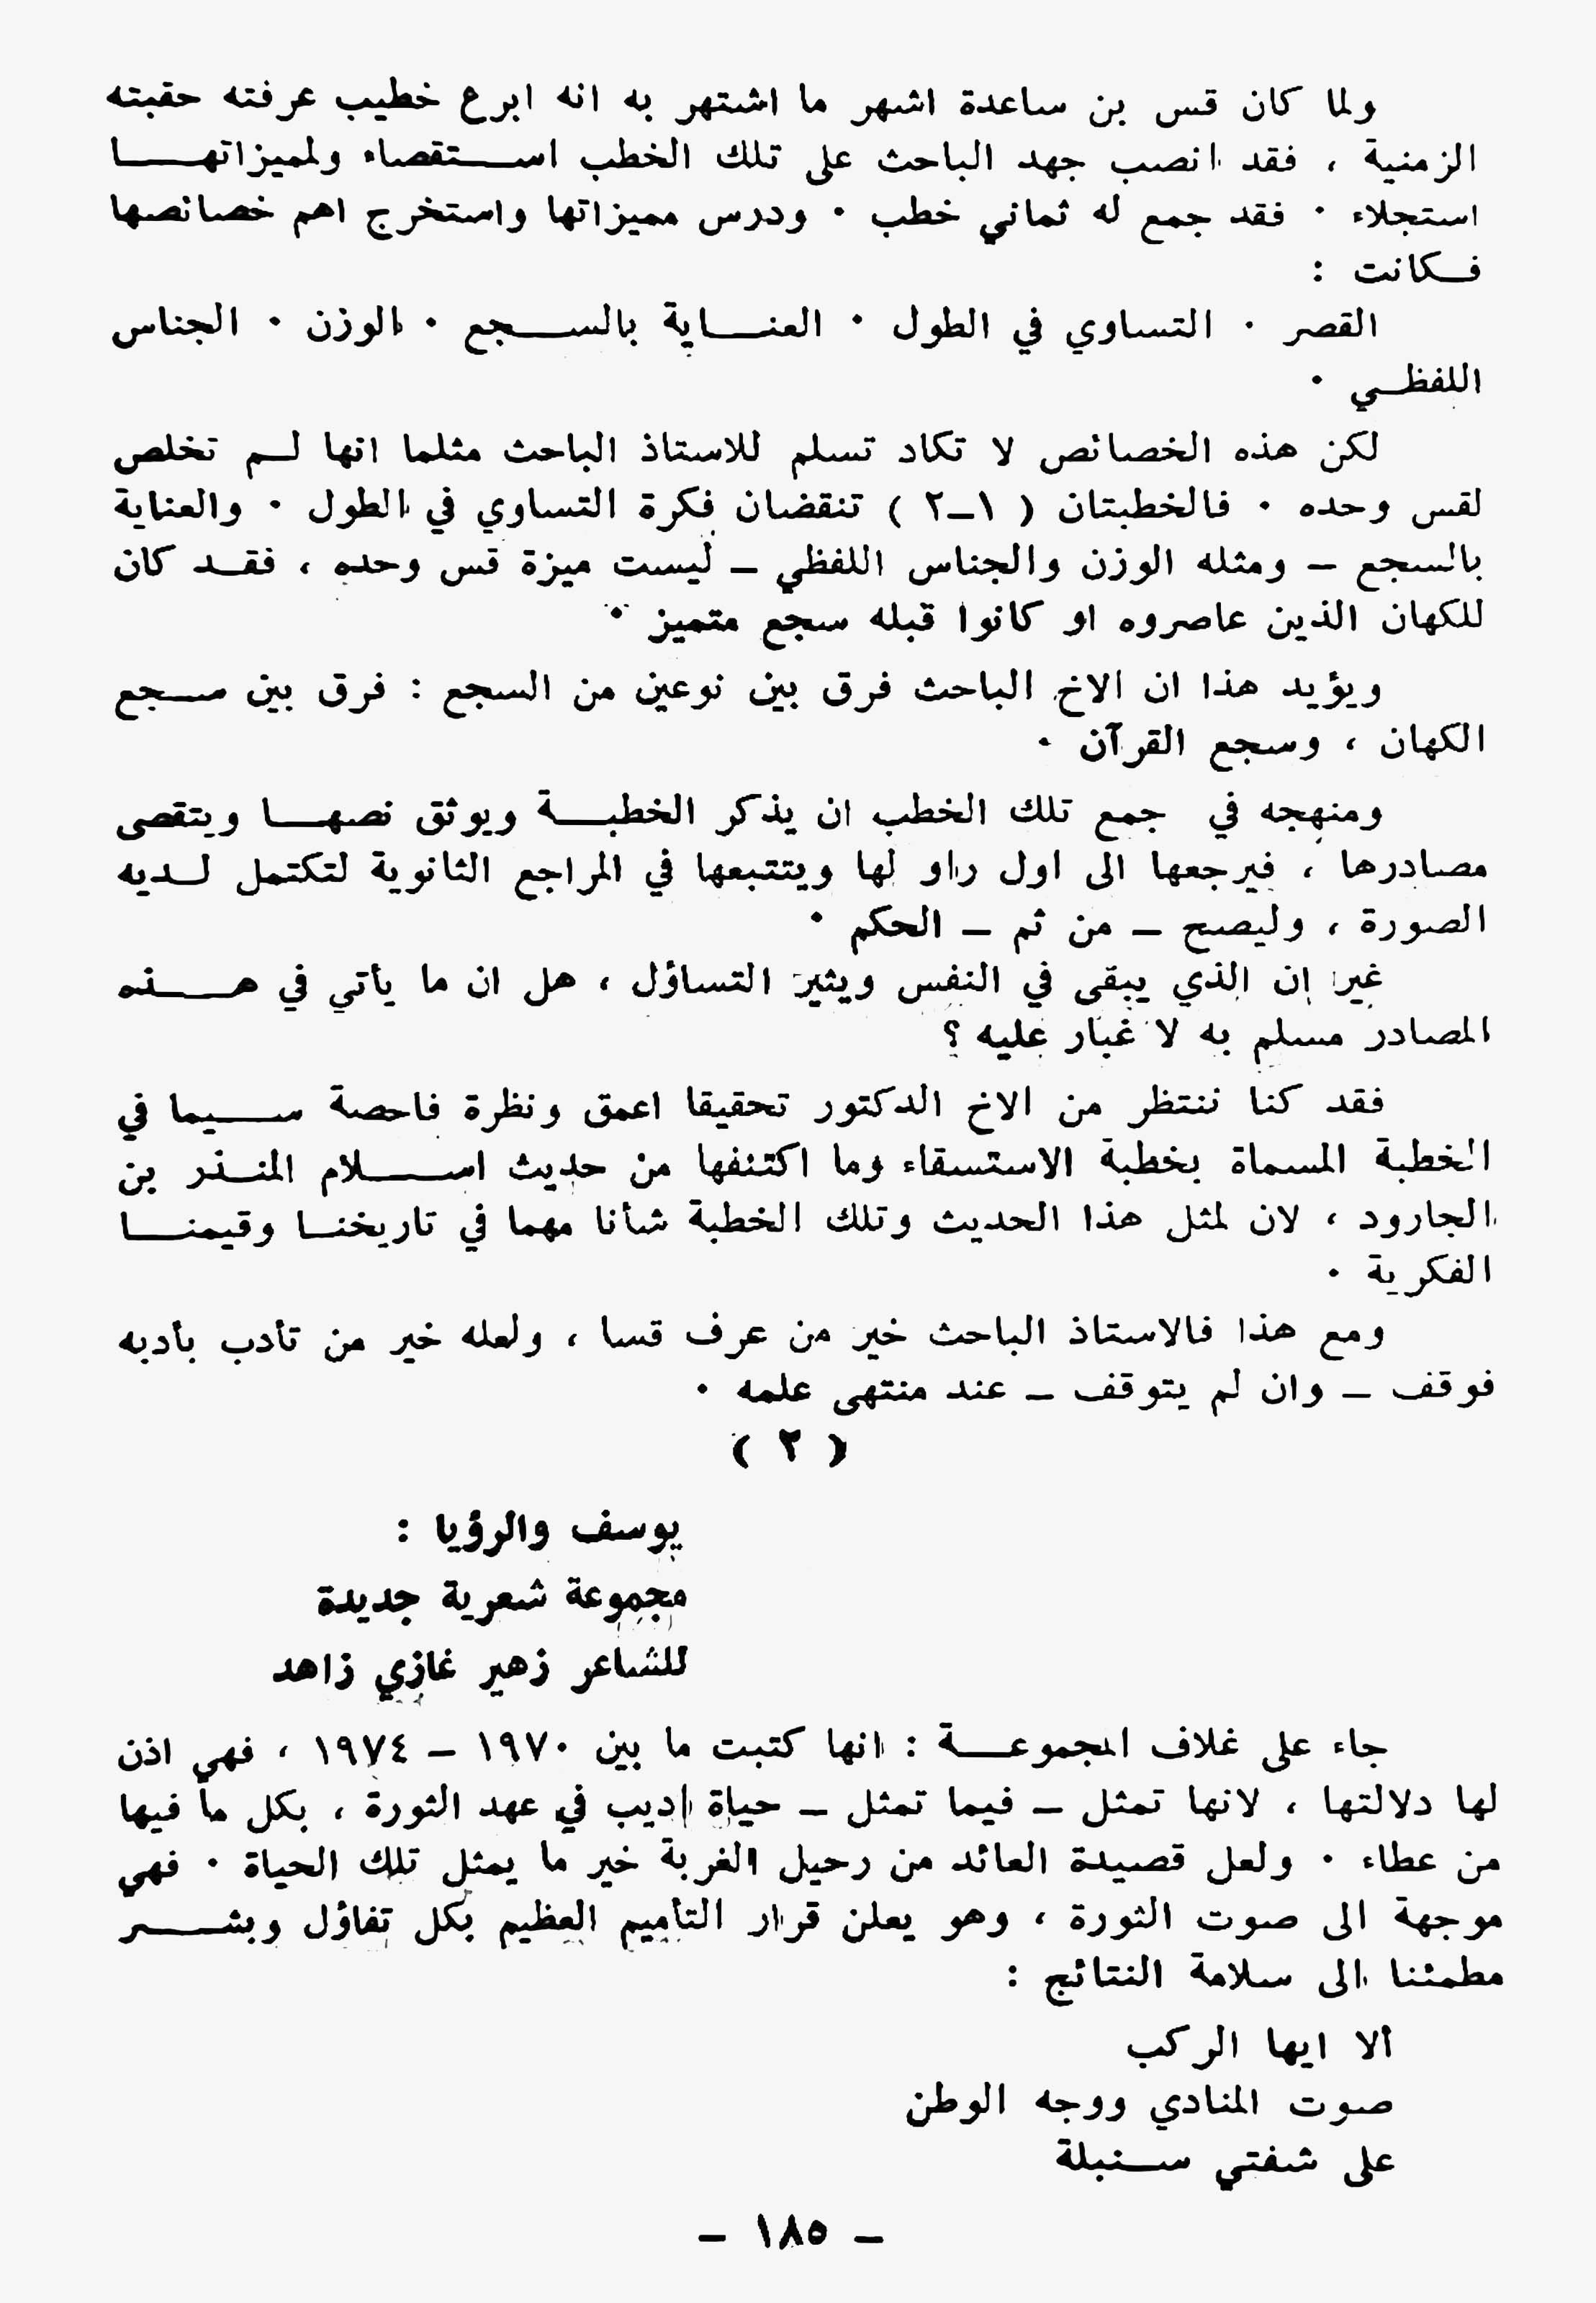 ولما كان قس بن ساعدة اشهر ما اشتهر به انه ابرع خطيب عرفته حقبته
الزمنية ، فقد انصب جهد الباحث على تلك الخطب استقصاء ولمميزاتها
استجلاء ٠ فقد جمع له ثماني خطب ٠ ودرس مميزاتها واستخرج اهم خصائصها
فكانت :
القصر ٠ التساوي في الطول ٠ العناية بالسجع ٠ الوزن ٠ الجناس
اللفظي ٠
لكن هذه الخصائص لا تكاد تسلم للاستاذ الباحث مثلما انها لم تخلص
لقس وحده ٠ فالخطبتان ( ١ـ٢ ) تنقضان فكرة التساوي في الطول ٠ والعناية
بالسجع – ومثله الوزن والجناس اللفظي – ليست ميزة قس وحده ، فقد كان
للكهان الذين عاصروه او كانوا قبله سجع متميز ٠
ويؤيد هذا ان الاخ الباحث فرق بين نوعين من السجع : فرق بين سجع
الكهان ، وسجع القرآن ٠
ومنهجه في جمع تلك الخطب ان يذكر الخطبة ويوثق نصها ويتقصى
مصادرها ، فيرجعها الى اول راو لها ويتتبعها في المراجع الثانوية لتكتمل لديه
الصورة ، وليصح – من ثم – الحكم ٠
غير ان الذي يبقى في النفس ويثير التساؤل ، هل ان ما يأتي في هذه
المصادر مسلم به لا غبار عليه ؟
فقد كنا ننتظر من الاخ الدكتور تحقيقا اعمق ونظرة فاحصة سيما في
الخطبة المسماة بخطبة الاستسقاء وما اكتنفها من حديث اسلام المنذر بن
الجارود ، لان لمثل هذا الحديث وتلك الخطبة شأنا مهما في تاريخنا وقيمنا
الفكرية ٠
ومع هذا فالاستاذ الباحث خير من عرف قسا ، ولعله خير من تأدب بأدبه
فوقف – وان لم يتوقف – عند منتهى علمه ٠
( ٢ )
يوسف والرؤيا :
مجموعة شعرية جديدة
للشاعر زهير غازي زاهد
جاء على غلاف المجموعة : انها كتبت ما بين ١٩٧٠ – ١٩٧٤ ، فهي اذن
لها دلالتها ، لانها تمثل – فيما تمثل – حياة اديب في عهد الثورة ، بكل ما فيها
من عطاء ٠ ولعل قصيدة العائد من رحيل الغربة خير ما يمثل تلك الحياة ٠ فهي
موجهة الى صوت الثورة ، وهو يعلن قرار التأميم العظيم بكل تفاؤل وبشر
مطمئنا الى سلامة النتائج :
ألا ايها الركب
صوت المنادي ووجه الوطن
على شفتي سنبلة
– ١٨٥ –